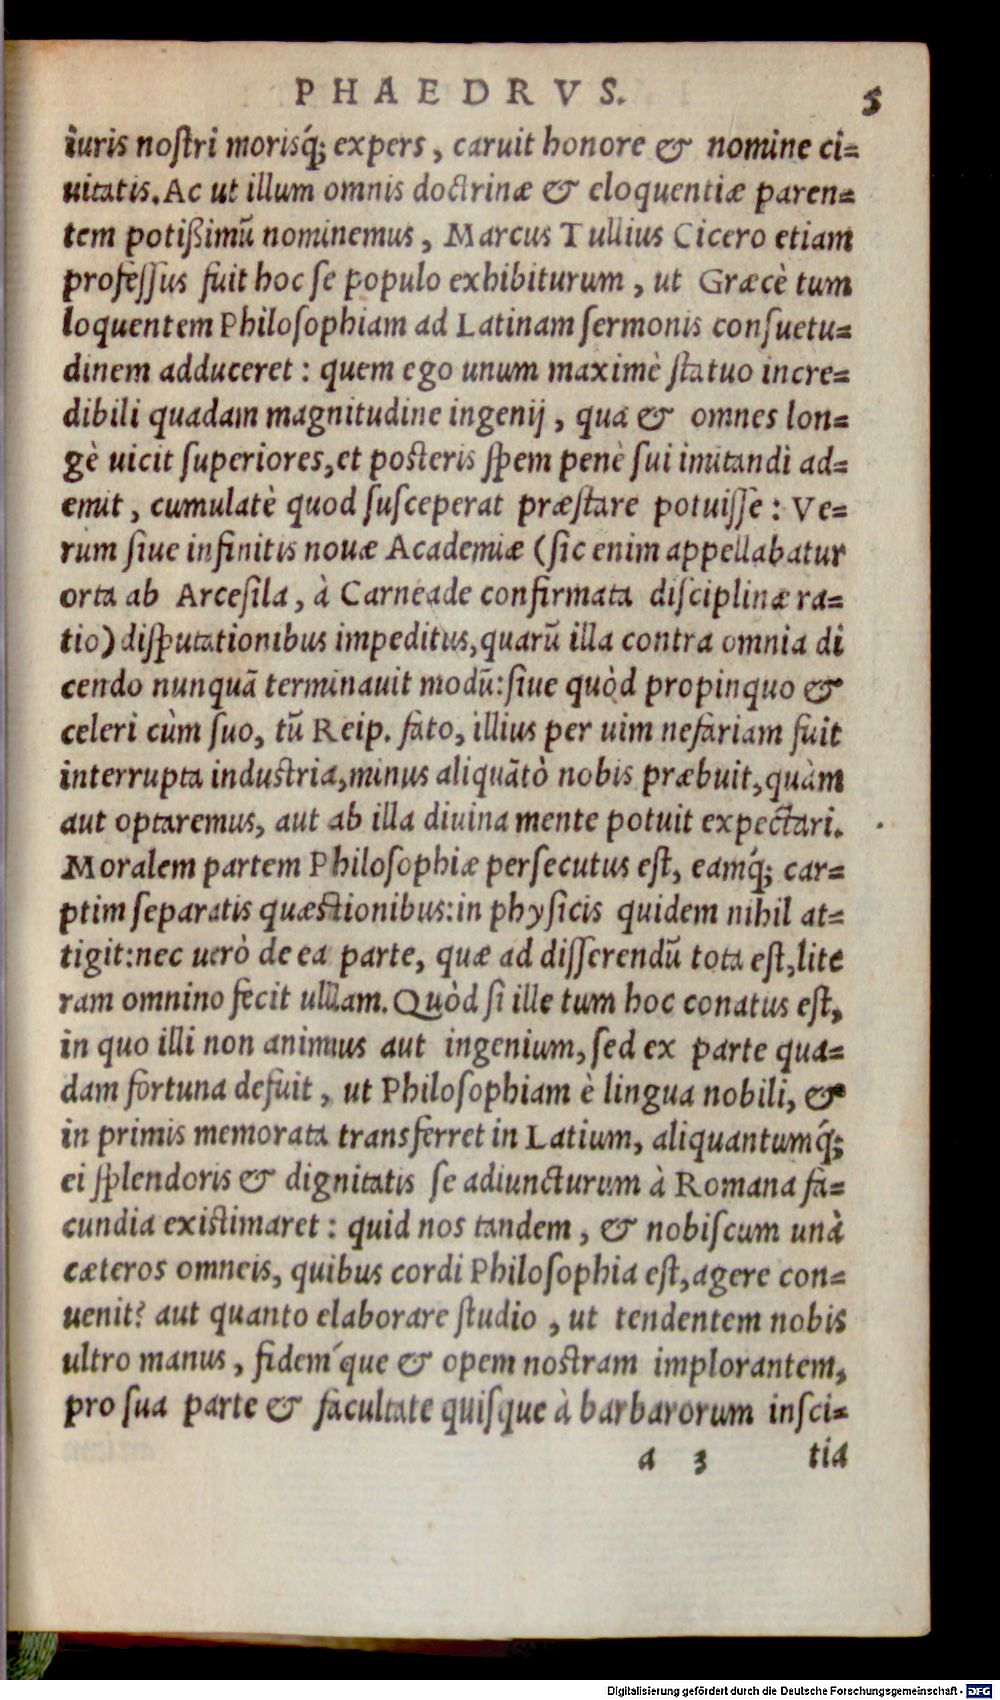 PHAEDRVS. 5
iuris nostri morisq́; expers, caruit honore & nomine ci=
uitatis. Ac ut illum omnis doctrinæ & eloquentiæ paren=
tem potißimũ nominemus, Marcus Tullius Cicero etiam
professus fuit hoc se populo exhibiturum, ut Græcè tum
loquentem Philosophiam ad Latinam sermonis consuetu=
dinem adduceret: quem ego unum maximè statuo incre=
dibili quadam magnitudine ingenij, qua & omnes lon=
gè uicit superiores, et posteris spem penè sui imitandi ad=
emit, cumulatè quod susceperat præstare potuisse: Ve=
rum siue infinitis nouæ Academiæ (sic enim appellabatur
orta ab Arcesila, à Carneade confirmata disciplinæ ra=
tio) disputationibus impeditus, quarũ illa contra omnia di
cendo nunquã terminauit modũ: siue quòd propinquo &
celeri cùm suo, tũ Reip. fato, illius per uim nefariam fuit
interrupta industria, minus aliquãtò nobis præbuit, quàm
aut optaremus, aut ab illa diuina mente potuit expectari.
Moralem partem Philosophiæ persecutus est, eamq́; car=
ptim separatis quæstionibus: in physicis quidem nihil at=
tigit: nec uerò de ea parte, quæ ad disserendũ tota est, lite
ram omnino fecit ullam. Quòd si ille tum hoc conatus est,
in quo illi non animus aut ingenium, sed ex parte qua=
dam fortuna defuit, ut Philosophiam è lingua nobili, &
in primis memorata transferret in Latium, aliquantumq́;
ei splendoris & dignitatis se adiuncturum à Romana fa=
cundia existimaret: quid nos tandem, & nobiscum unà
cæteros omneis, quibus cordi Philosophia est, agere con=
uenit? aut quanto elaborare studio, ut tendentem nobis
ultro manus, fidem´que & opem nostram implorantem,
pro sua parte & facultate quisque à barbarorum insci=
a 3 tia
Digitalisierung gefördert durch die Deutsche Forschungsgemeinschaft - DFG